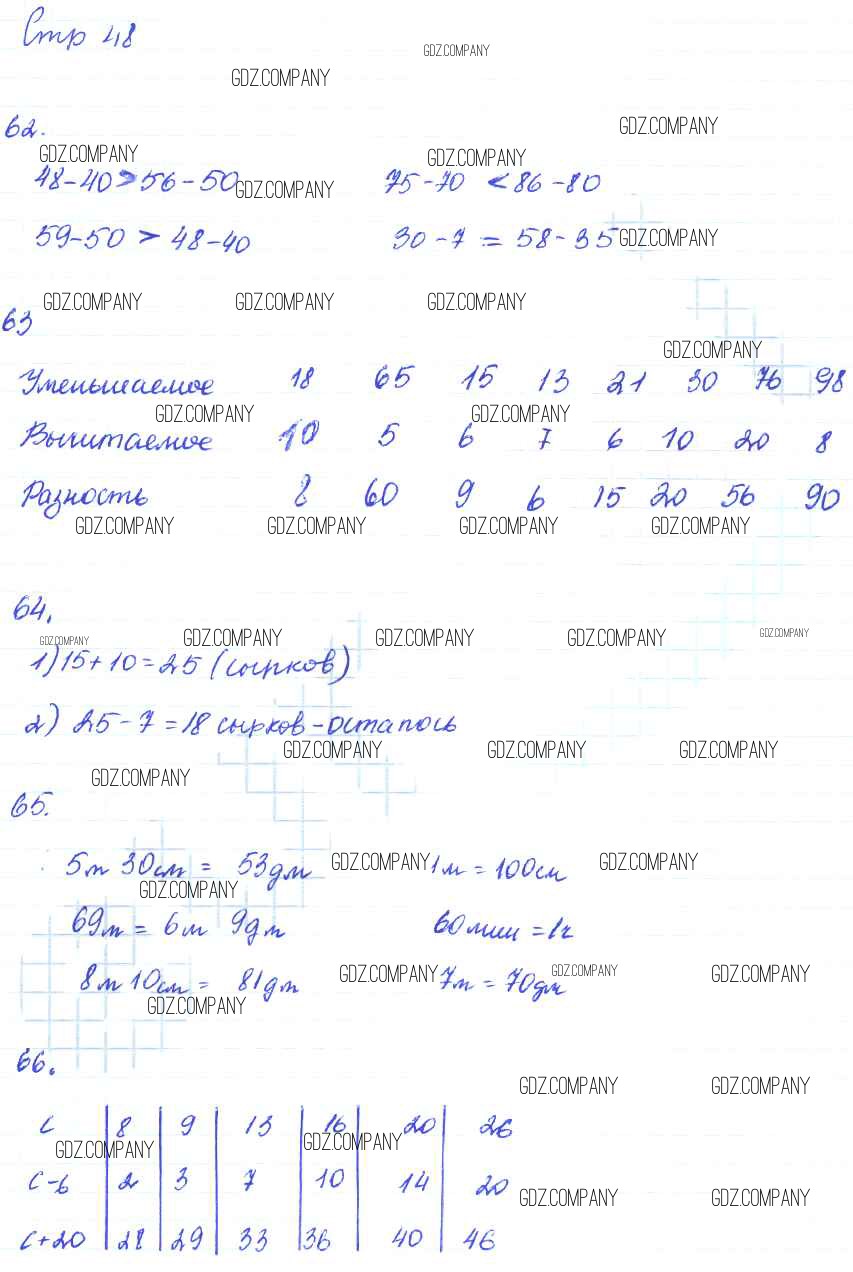 Стр 48
GDZ.COMPANY
GDZ.COMPANY
62.
GDZ.COMPANY
GDZ.COMPANY GDZ.COMPANY
48-40>56-50 75-70 <86-80
GDZ.COMPANY
59-50 > 48-40 30-7 = 58-35
GDZ.COMPANY
GDZ.COMPANY GDZ.COMPANY GDZ.COMPANY
63
GDZ.COMPANY
Уменьшаемое 18 65 15 13 21 30 76 98
GDZ.COMPANY GDZ.COMPANY
Вычитаемое 10 5 6 7 6 10 20 8
Разность 8 60 9 6 15 20 56 90
GDZ.COMPANY GDZ.COMPANY GDZ.COMPANY GDZ.COMPANY
64.
GDZ.COMPANY GDZ.COMPANY GDZ.COMPANY GDZ.COMPANY GDZ.COMPANY
1) 15+10=25 (сырков)
2) 25-7=18 сырков-осталось
GDZ.COMPANY GDZ.COMPANY GDZ.COMPANY
GDZ.COMPANY
65.
5м 30см = 53дм 1м = 100см
GDZ.COMPANY GDZ.COMPANY
GDZ.COMPANY
69м = 6м 9дм 60мин = 1ч
8м 10см = 81дм 7м = 70дм
GDZ.COMPANY GDZ.COMPANY GDZ.COMPANY
GDZ.COMPANY
66.
GDZ.COMPANY GDZ.COMPANY
с 8 9 13 16 20 26
GDZ.COMPANY GDZ.COMPANY
с-6 2 3 7 10 14 20
GDZ.COMPANY GDZ.COMPANY
с+20 28 29 33 36 40 46